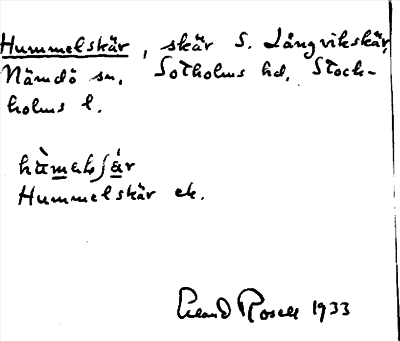 Hummelskär, skär S. Långvikskär,
Nämdö sn. Sotholms hd, Stock-
holms l.
Hummelskär ek.
Erland Rosell 1933